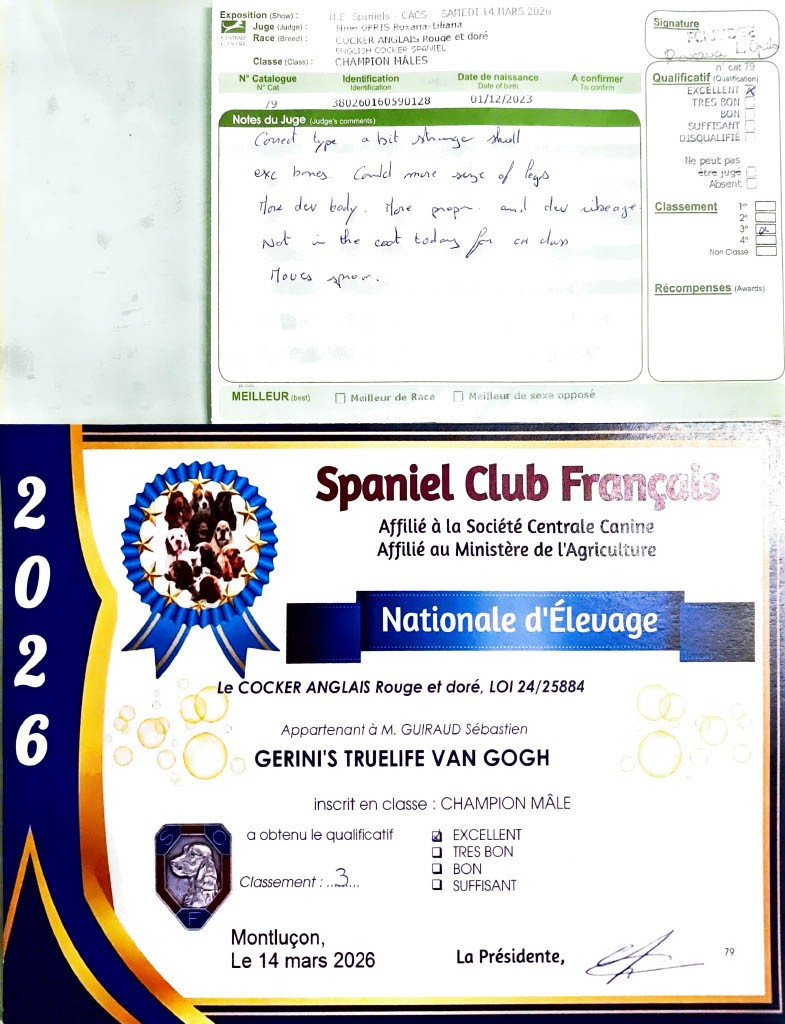 Exposition (Show) : N.E. Spaniels - CACS SAMEDI 14 MARS 2026
Juge (Judge) : Mme OPRIS Roxana-Liliana
Race (Breed) : COCKER ANGLAIS Rouge et doré
ENGLISH COCKER SPANIEL
Classe (Class) : CHAMPION MÂLES
CENTRALE CANINE
N° Catalogue Identification Date de naissance A confirmer
N° Cat Identification Date of birth To confirm
79 380260160590128 01/12/2023
Notes du Juge (Judge's comments)
Correct type a bit strange skull
exc bones. Could more size of legs
More dev body. More propn. and dev ribcage.
Not in the coat today for CH class
Moves
MEILLEUR (best) Meilleur de Race Meilleur de sexe opposé
Signature
Roxana L.
n° cat 79
Qualificatif (Qualification)
EXCELLENT X
TRES BON
BON
SUFFISANT
DISQUALIFIÉ
Ne peut pas
être jugé
Absent
Classement 1er
2e
3e
4e
Non Classé
Récompenses (Awards)
2026
Spaniel Club Français
Affilié à la Société Centrale Canine
Affilié au Ministère de l'Agriculture
Nationale d'Élevage
Le COCKER ANGLAIS Rouge et doré, LOI 24/25884
Appartenant à M. GUIRAUD Sébastien
GERINI'S TRUELIFE VAN GOGH
inscrit en classe : CHAMPION MÂLE
a obtenu le qualificatif EXCELLENT
TRES BON
BON
SUFFISANT
Classement : ..3.....
S C F
Montluçon,
Le 14 mars 2026
La Présidente,
79